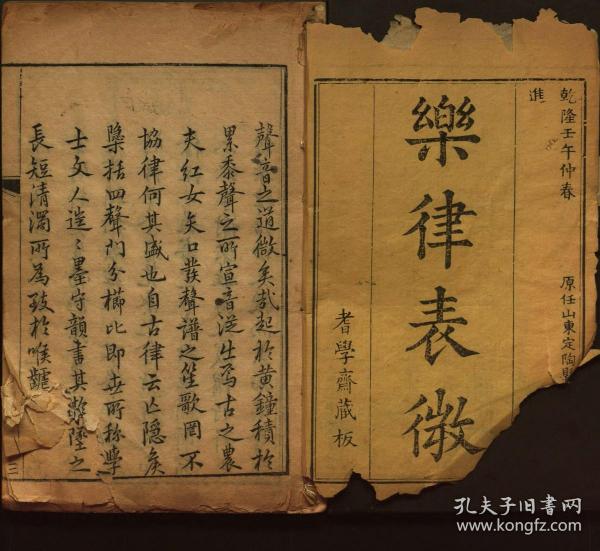 乾隆壬午仲春
進
原任山東定陶縣
樂律表微
耆學齋藏板
聲音之道微矣哉起於黄鐘積於
累黍聲之所宣音從生焉古之農
夫紅女矢口發聲譜之笙歌罔不
協律何其盛也自古律云亡隐矦
檃括四聲門分櫛比即世所称學
士文人邊墨守韻書其弊墜之
長短清濁所為致於喉齶
三
孔夫子旧書网
www.kongfz.com